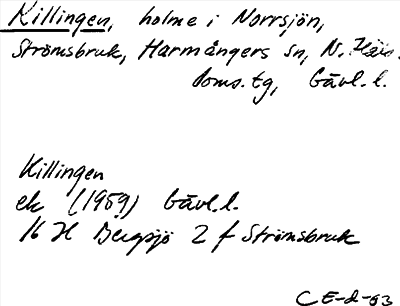 Killingen, holme i Norrsjön,
Strömsbruk, Harmångers sn, N. Häls.
doms.tg, Gävl.l.
Killingen
ek (1959) Gävl.l.
16 H Bergsjö 2 f Strömsbruk
C E-d-83